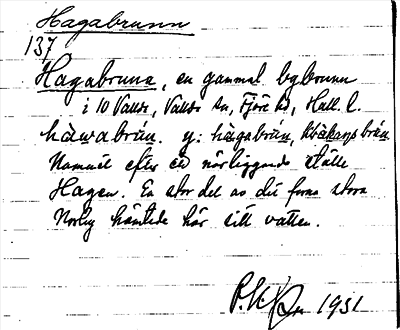 Hagabrunn
137
Hagabrunn, en gammal bybrunn
i 10 Valls, Valls sn, Fjäre hd, Hall. l.
hàwabrùn. y: hàgabrùn,
Namnet efter ett närliggande ställe
Hagen. En stor del av det forna stora
Norby hämtade här sitt vatten.
1931